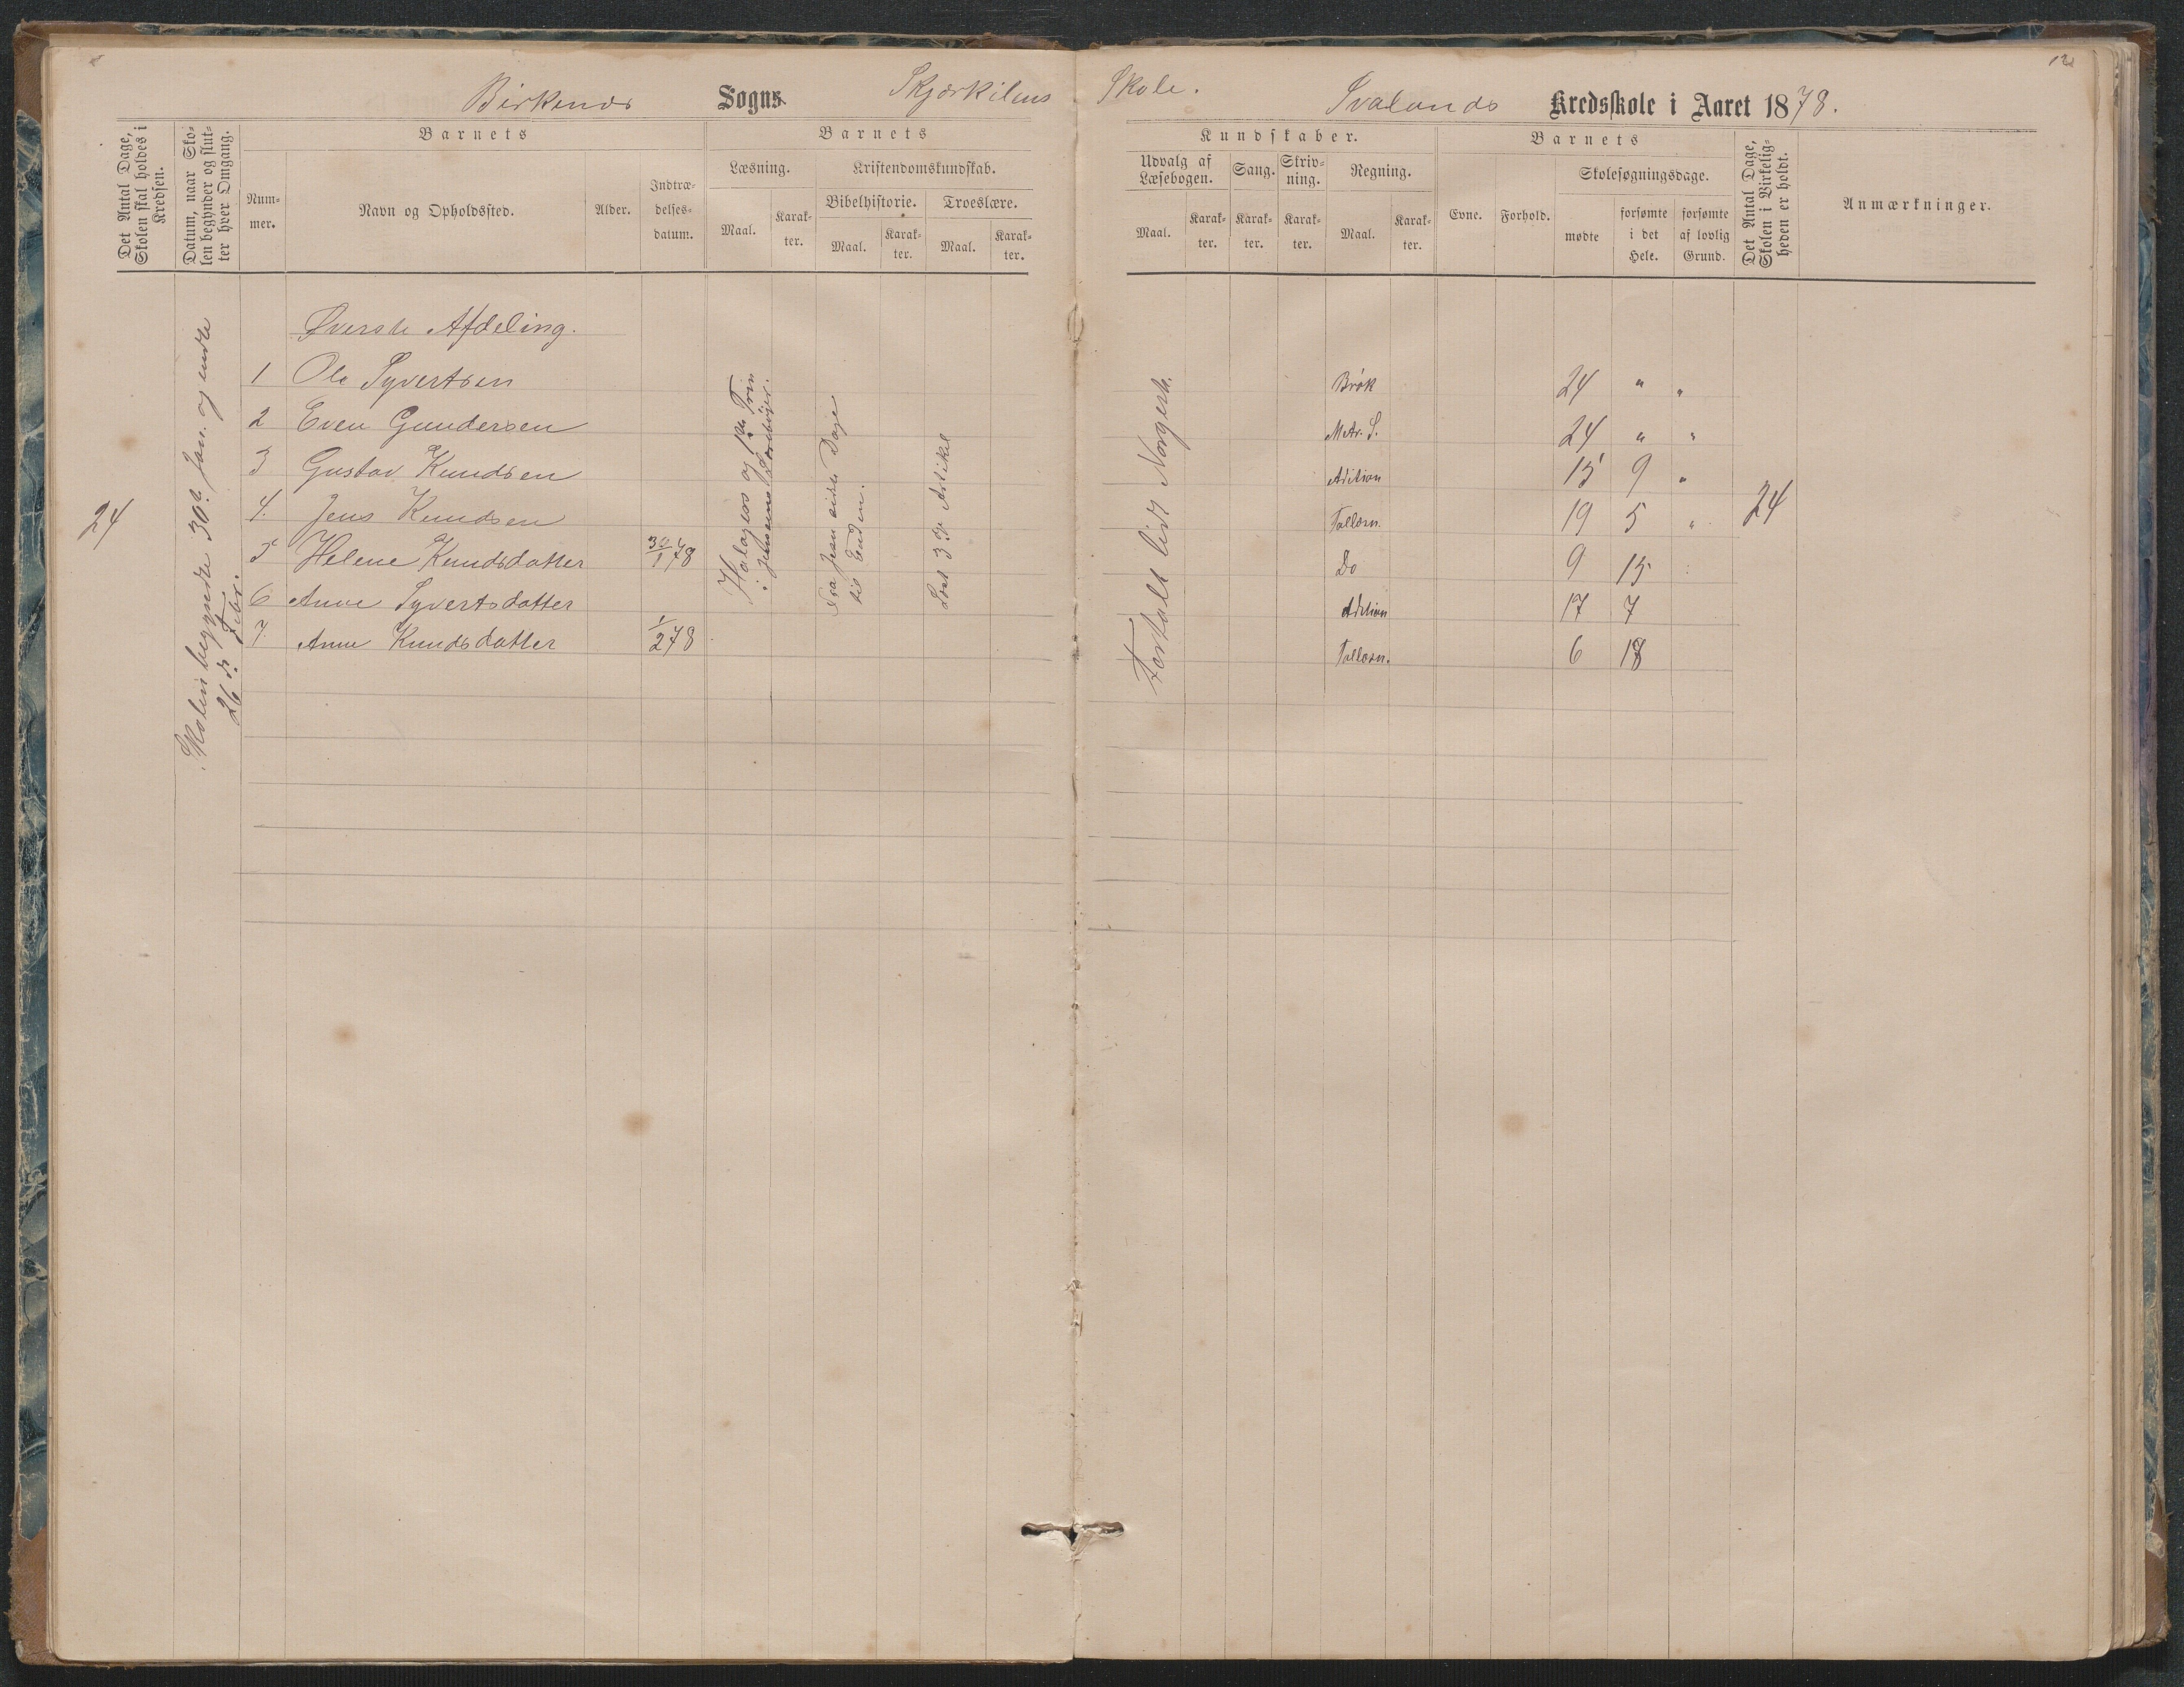 Birkenes Sogns Skjærkilens Skole. Svalands Kredsskole i Aaret 1878.
12
Det Antal Dage, Skolen skal holdes i Kredsen.
Datum, naar Skolen begynder og slutter hver Omgang.
Barnets
Nummer.
Navn og Opholdssted.
Alder.
Indtrædelsesdatum.
Barnets
Læsning.
Maal.
Karakter.
Kristendomskundskab.
Bibelhistorie.
Maal.
Karakter.
Troeslære.
Maal.
Karakter.
Kundskaber.
Udvalg af Læsebogen.
Maal.
Karakter.
Sang.
Karakter.
Skrivning.
Karakter.
Regning.
Maal.
Karakter.
Barnets
Evne.
Forhold.
Skolesøgningsdage.
mødte
forsømte i det Hele.
forsømte af lovlig Grund.
Det Antal Dage, Skolen i Virkeligheden er holdt.
Anmærkninger.
24
Skolen begyndte 30te Jan. og endte
26de Febr.
Øverste Afdeling.
1 Ole Syvertsen Brøk 24 " "
2 Even Gundersen 24 " "
3 Gustav Knudsen Adition 15 9 "
4. Jens Knudsen Tallæsn. 19 5 " 24
5 Helene Knudsdatter 30/1 78 Do 9 15
6 Anne Syvertsdatter Adition 17 7
7. Anne Knudsdatter 1/2 78 Tallæsn. 6 18
og 1ste Trin
i Jensens Læsebøger.
Fra Jesu sidste Dage
til Enden.
Læst 3die Artikel
Fortalt lidt Norgesh.